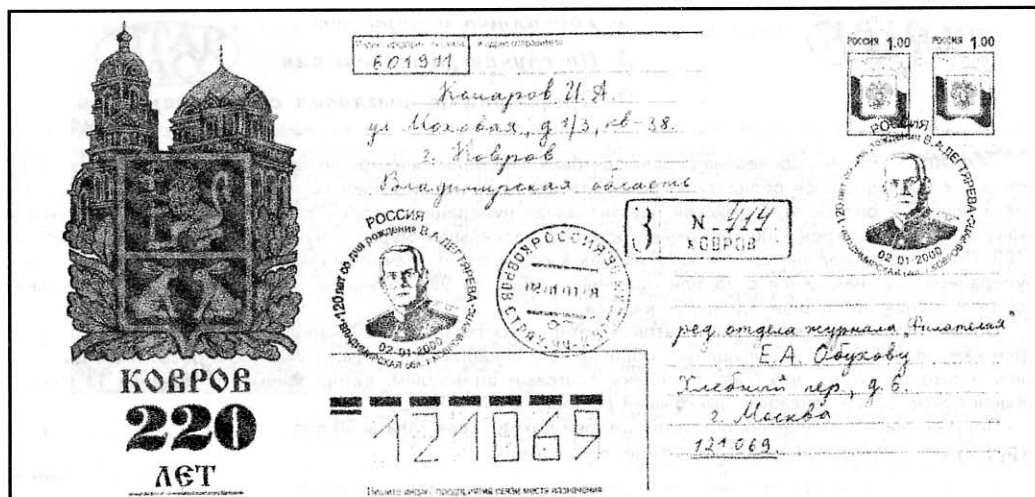 КОВРОВ
220
ЛЕТ
601911
Комаров И. А.
ул Моховая, д 1/3, кв-38.
г. Ковров
Владимирская область
РОССИЯ 1.00
РОССИЯ 1.00
РОССИЯ
120 лет со дня рождения В.А.ДЕГТЯРЕВА
02-01-2000
ВЛАДИМИРСКАЯ ОБЛ. Г. КОВРОВ
РОССИЯ
120 лет со дня рождения В.А.ДЕГТЯРЕВА
02-01-2000
ВЛАДИМИРСКАЯ ОБЛ. Г. КОВРОВ
РОССИЯ
КОВРОВ
З
№ 414
КОВРОВ
ред отдела журнала „Филателия"
Е.А. Обухову
Хлебный пер, д 6.
г. Москва
121069.
121069
Пишите индекс предприятия связи места назначения